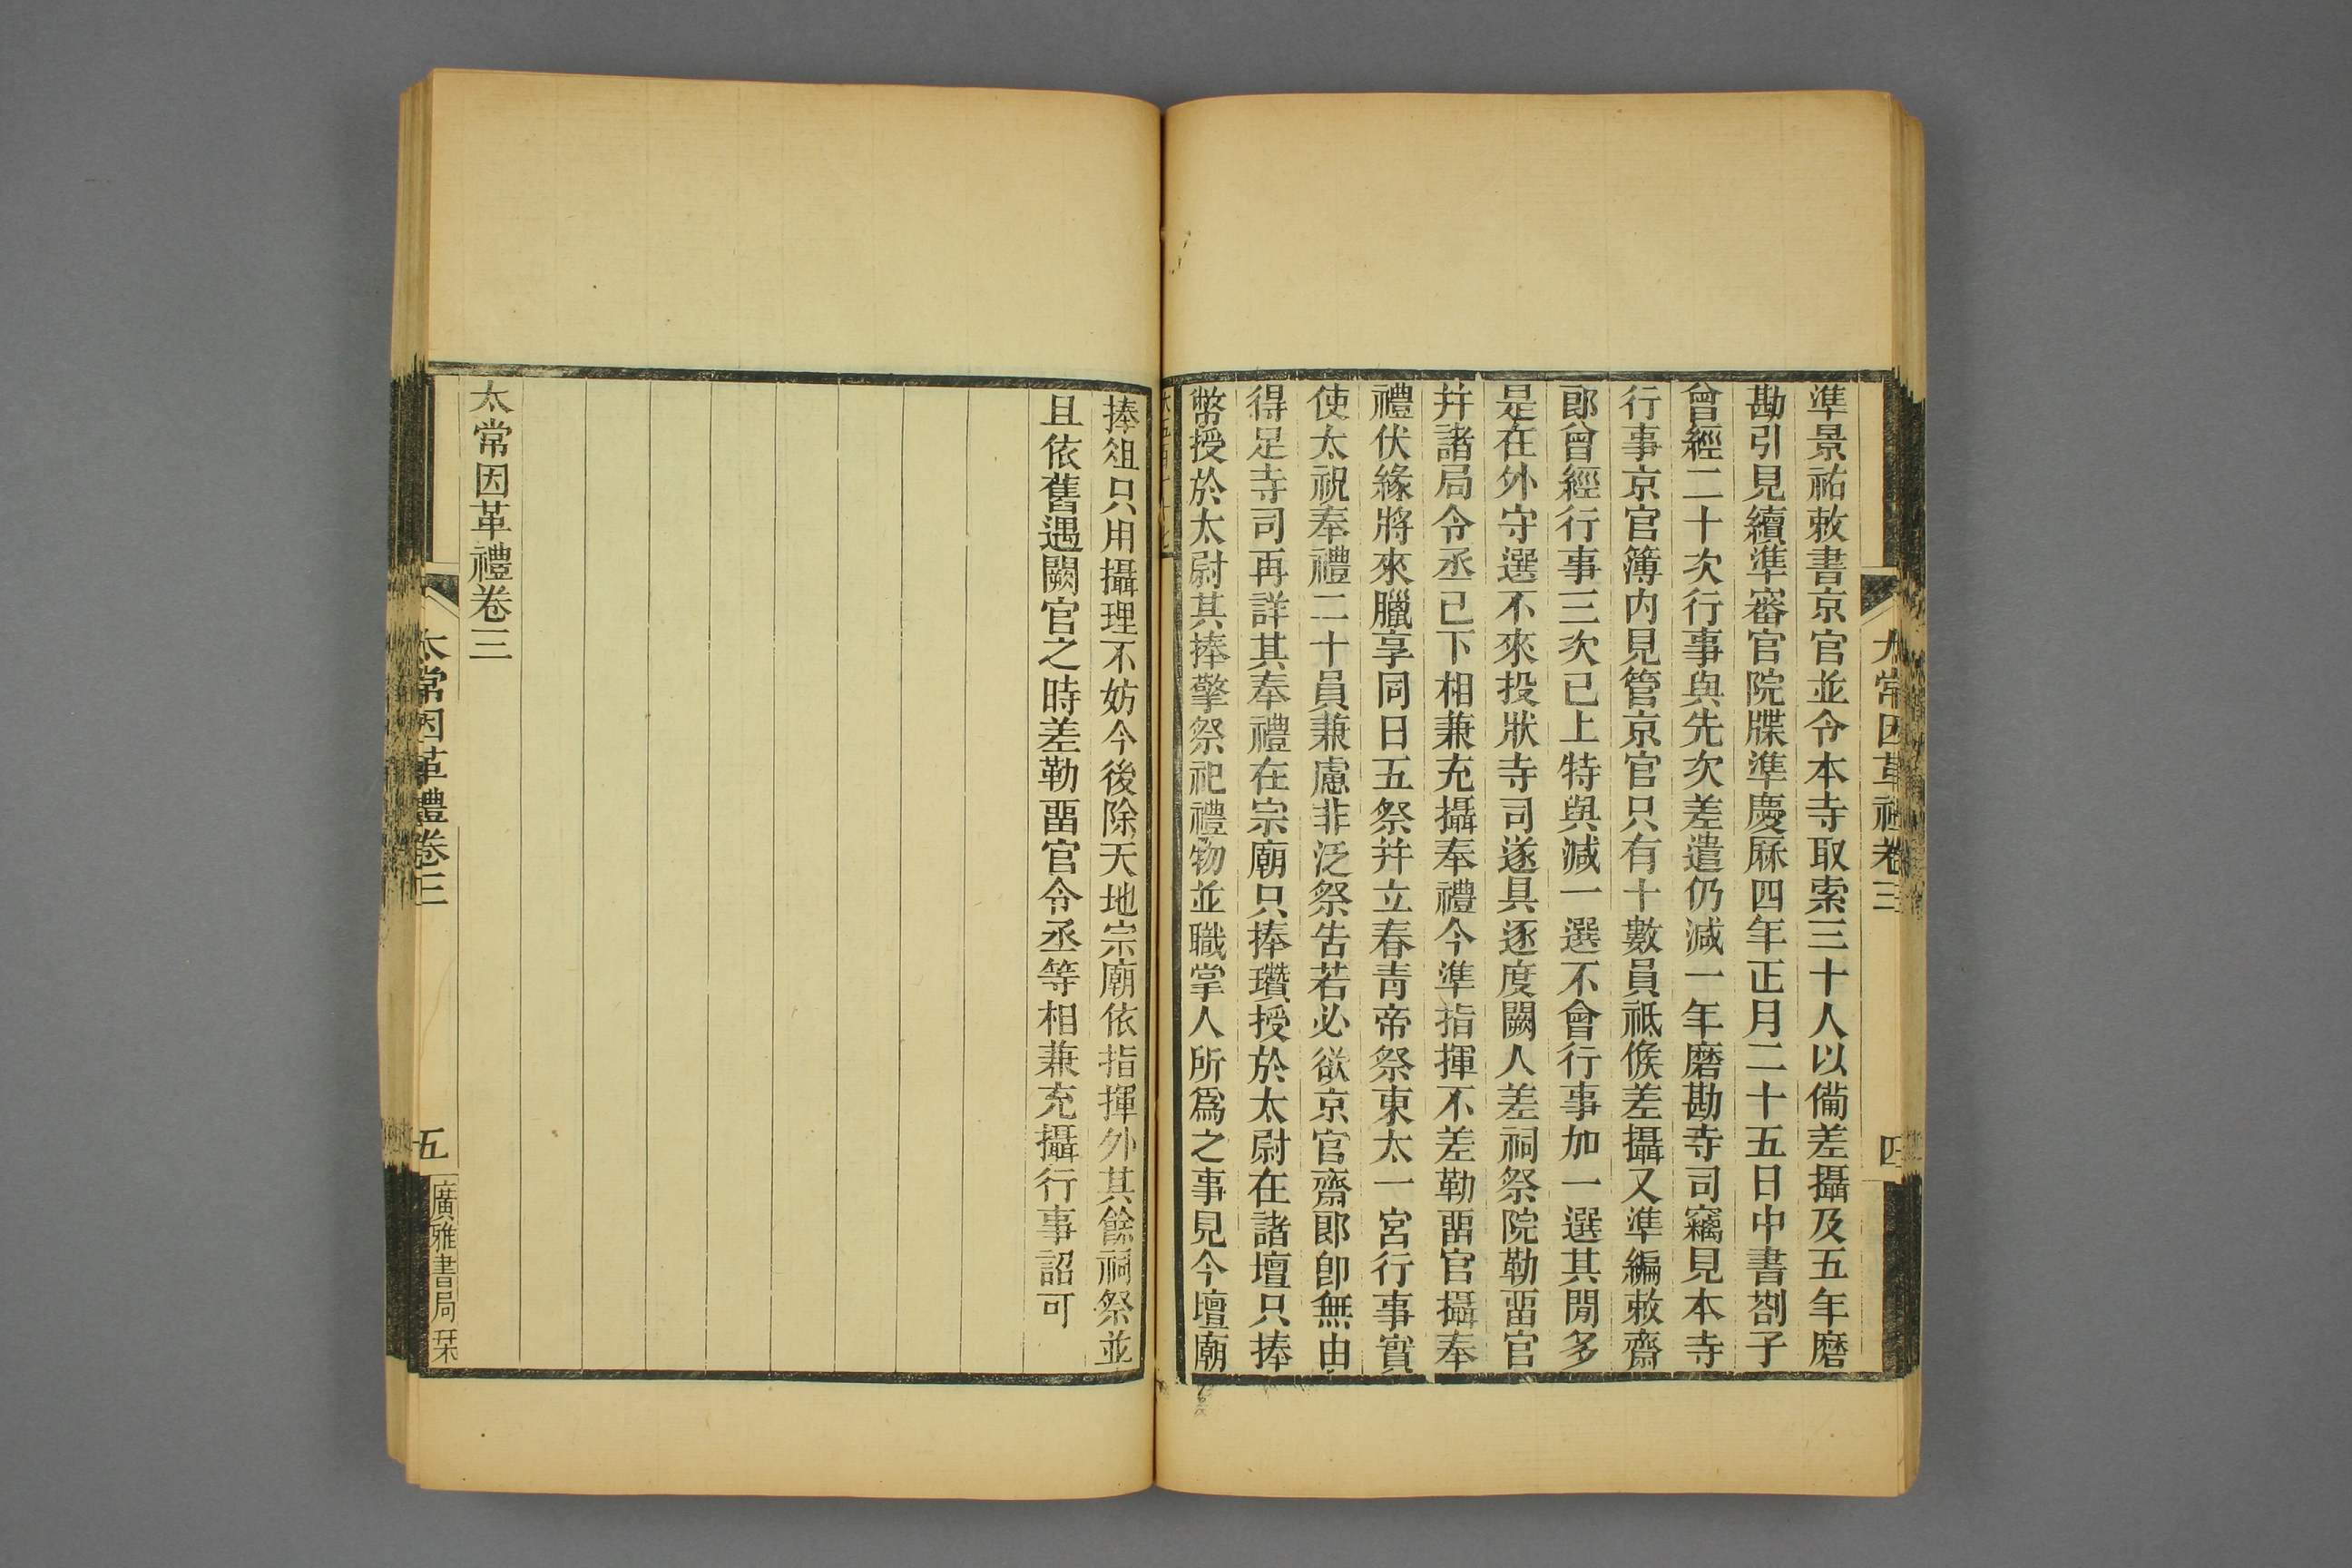 太常因革禮卷三
四
準景祐敕書京官並令本寺取索三十人以備差攝及五年磨
勘引見續準審官院牒準慶厤四年正月二十五日中書劄子
曾經二十次行事與先次差遣仍減一年磨勘寺司竊見本寺
行事京官簿內見管京官只有十數員祗候差攝又準編敕齋
郎曾經行事三次已上特與減一選不會行事加一選其閒多
是在外守選不來投狀寺司遂具逐度闕人差祠祭院勒畱官
幷諸局令丞已下相兼充攝奉禮今準指揮不差勒畱官攝奉
禮伏緣將來臘享同日五祭幷立春青帝祭東太一宮行事實
使太祝奉禮二十員兼慮非泛祭告若必欲京官齋郎卽無由
得足寺司再詳其奉禮在宗廟只捧瓚授於太尉在諸壇只捧
幣授於太尉其捧擎祭祀禮物並職掌人所爲之事見今壇廟
捧俎只用攝理不妨今後除天地宗廟依指揮外其餘祠祭並
且依舊遇闕官之時差勒畱官令丞等相兼充攝行事詔可
太常因革禮卷三
太常因革禮卷三
五
廣雅書局栞